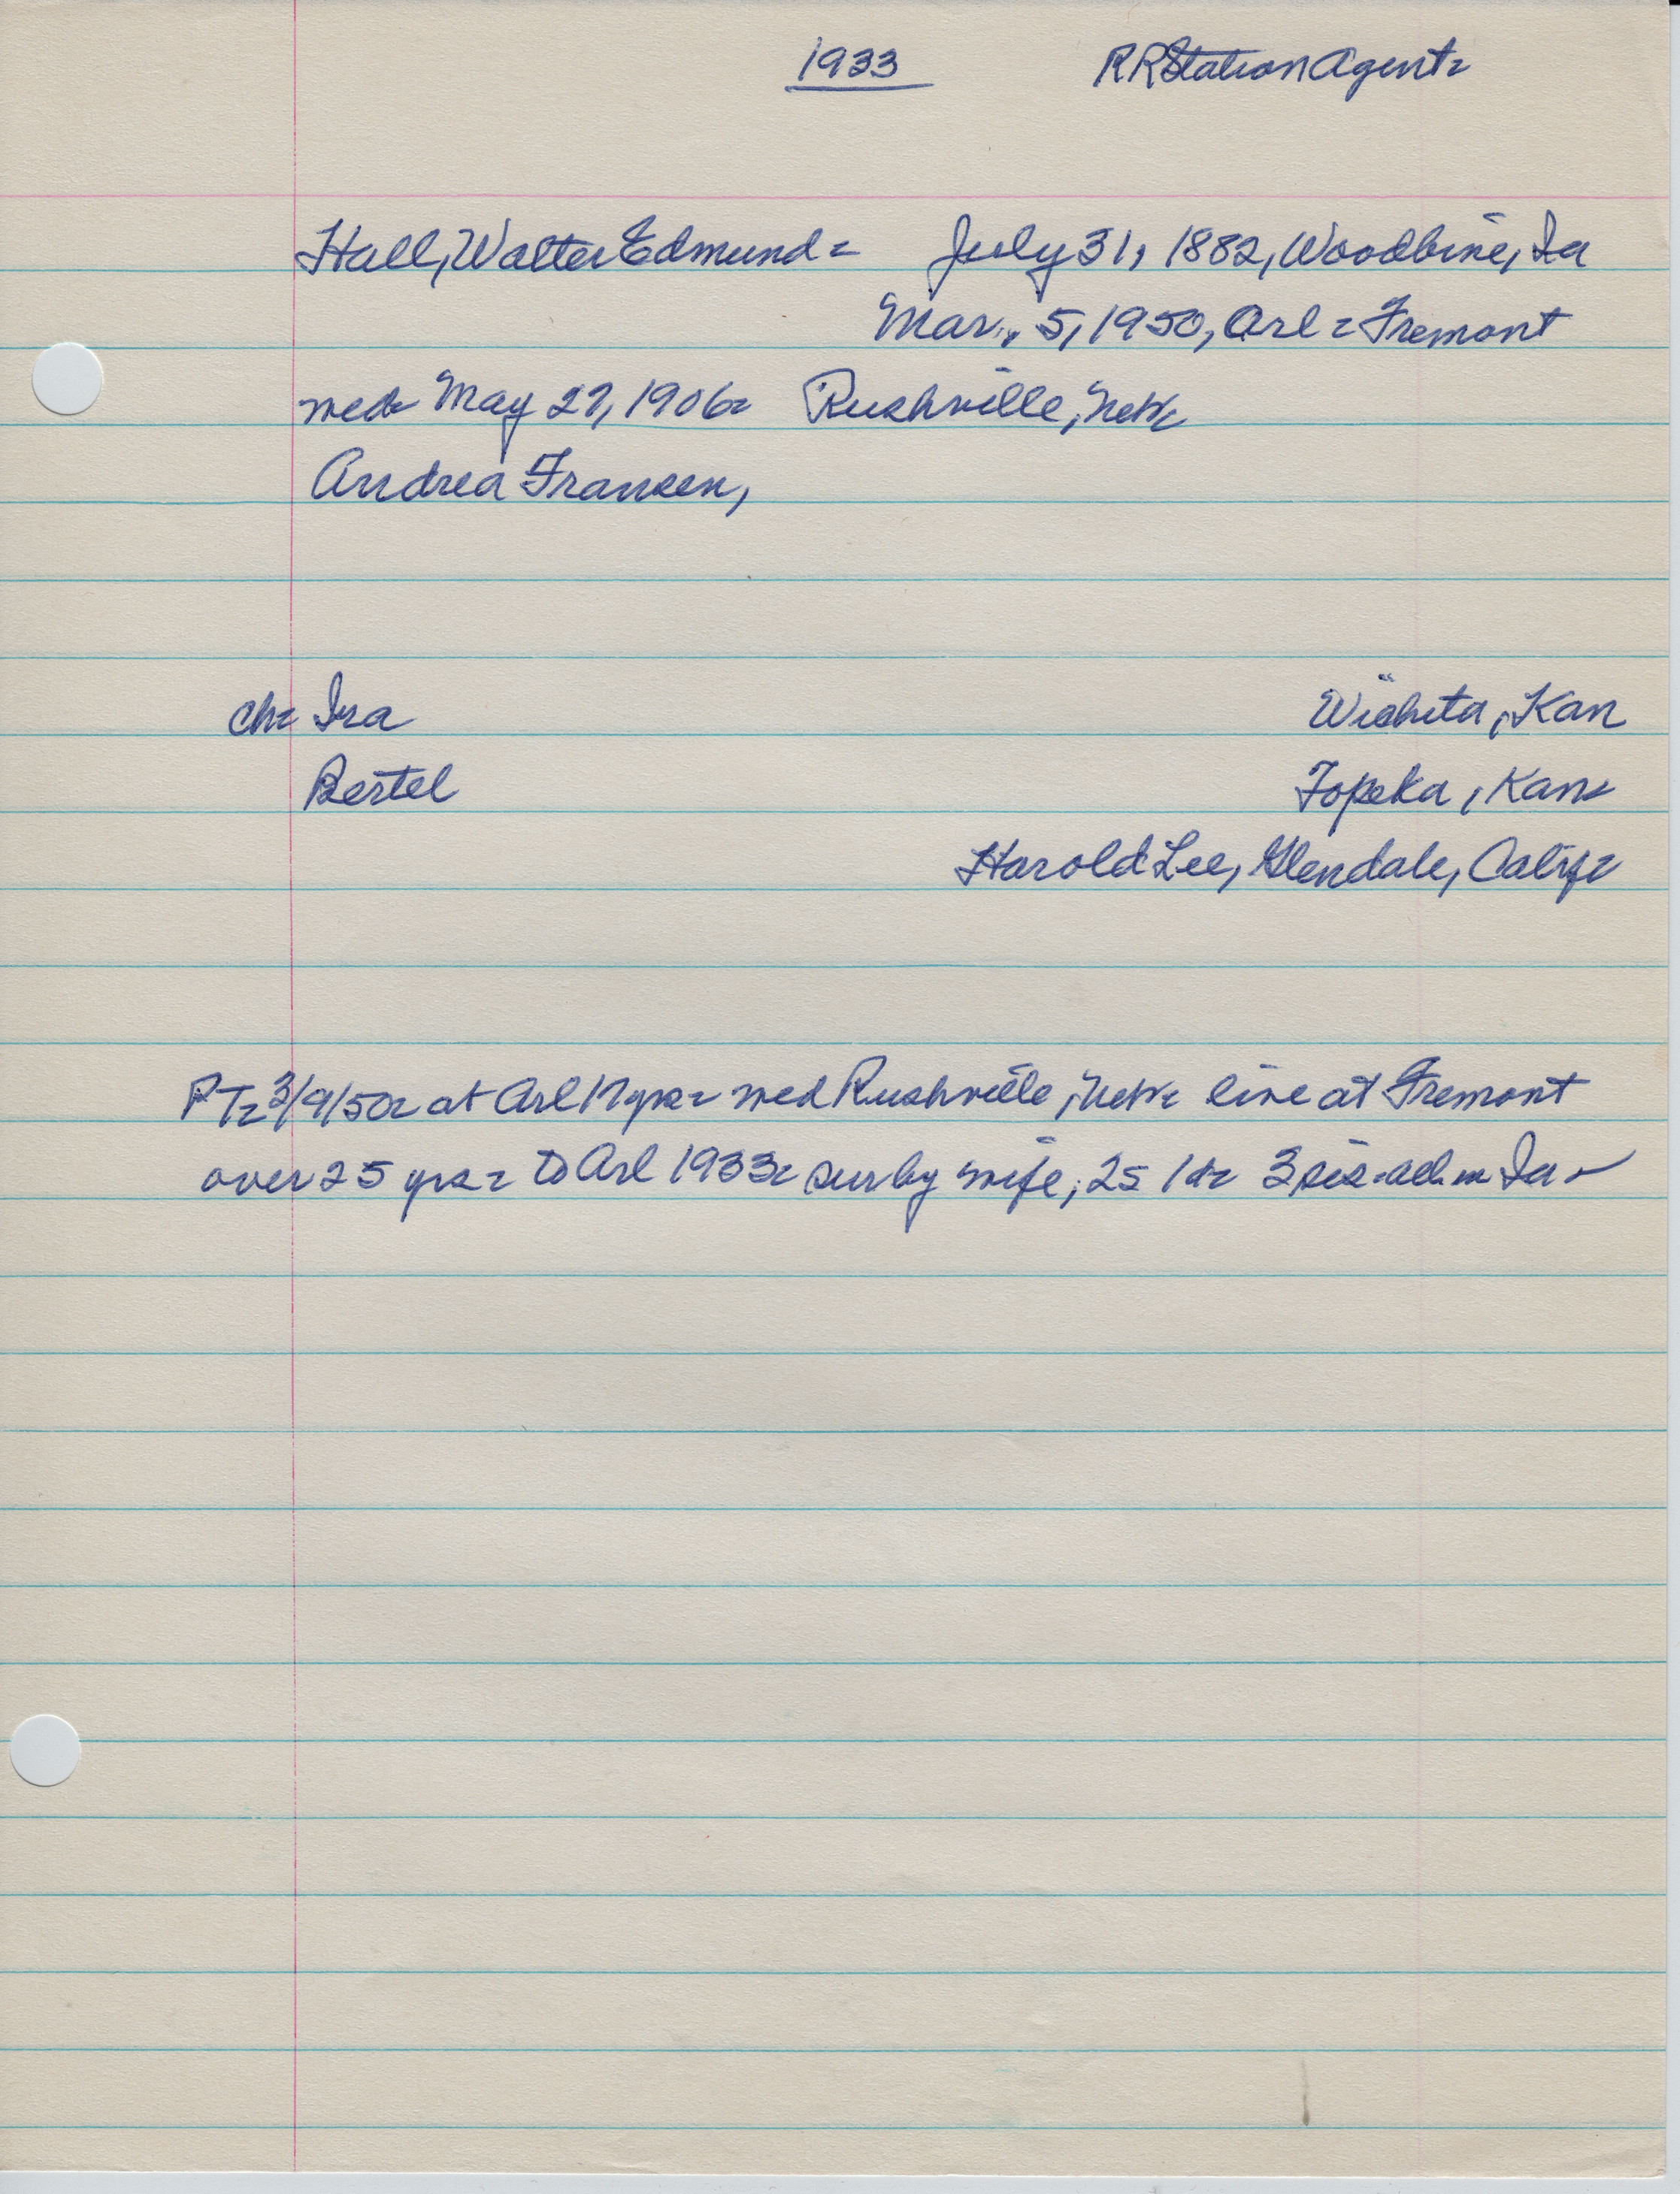 1933 RR Station Agent-
Hall, Walter Edmund- July 31, 1882, Woodbine, Ia
Mar., 5, 1950, Arl - Fremont
med- May 27, 1906- Rushville, Nebr-
Andrea Fransen,
ch- Ira Wichita, Kan
Bertel Topeka, Kans
Harold Lee, Glendale, Calif-
PT- 3/9/50- at Arl 17 yrs- med Rushville, Nebr- live at Fremont
over 25 yrs- to Arl 1933- sur by wife, 2s 1d- 3 sis-all in Ia-